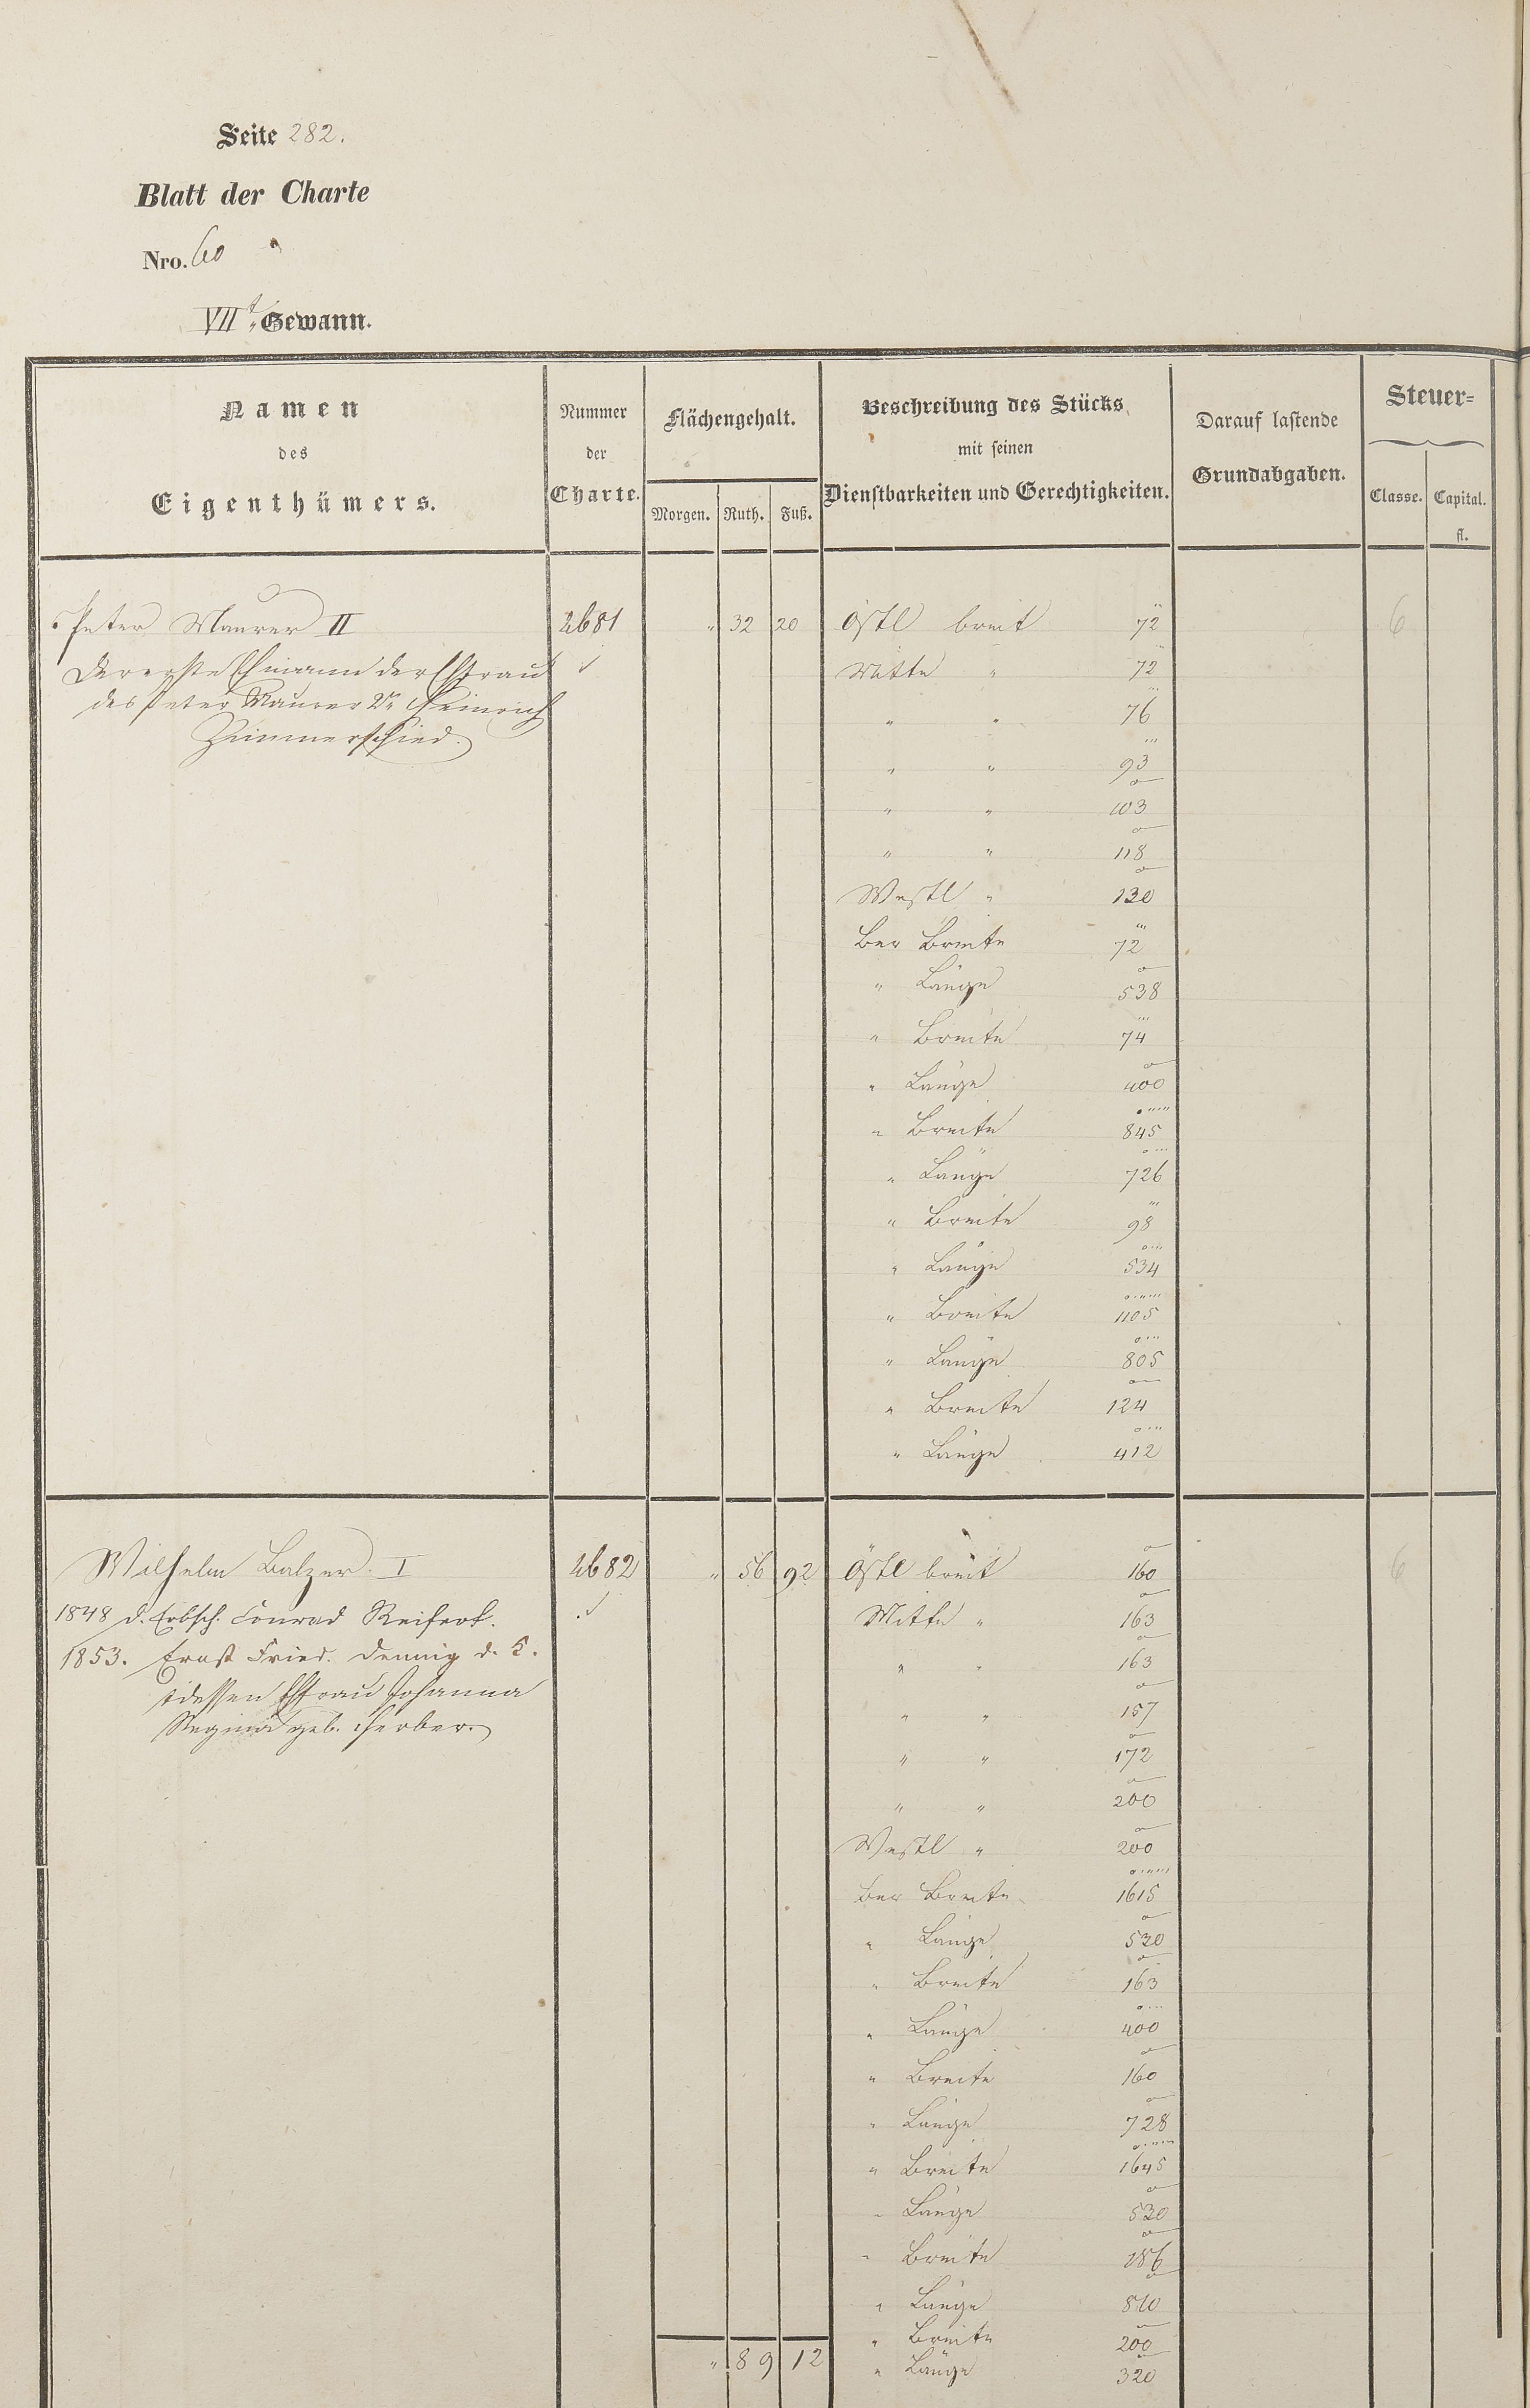 Seite 282.
Blatt der Charte
Nro. 60
VIIt. Gewann.
Namen
des
Eigenthümers.
Nummer
der
Charte.
Flächengehalt.
Morgen. Ruth. Fuß.
Beschreibung des Stücks
mit seinen
Dienstbarkeiten und Gerechtigkeiten.
Darauf lastende
Grundabgaben.
Steuer=
Classe. Capital.
fl.
Peter Maurer II 2681 " 32 20 Östl breit 72 6
Der erste Ehmann der Ehfrau Mitte " 72
des Peter Maurer 2r Heinrich " " 76
Zimmerschied.
" " 93
" " 103
" " 118
Westl " 130
Ber Breite 72
" Länge 538
" Breite 74
" Länge 400
" Breite 845
" Länge 726
" Breite 98
" Länge 534
" Breite 1105
" Länge 805
" Breite 124
" Länge 412
Wilhelm Balzer I 2682 " 56 92 Östl breit 160 6
1848 d. Erbsch. Conrad Reifert. Mitte " 163
1853. Ernst Fried. Dennig d. K. " " 163
dessen Ehfrau Johanna " " 157
Regina geb. Herber.
" " 172
" " 200
Westl " 200
Ber Breite 1615
" Länge 520
" Breite 163
" Länge 400
" Breite 160
" Länge 728
" Breite 1645
" Länge 530
" Breite 186
" Länge 810
" Breite 200
" 89 12 " Länge 320